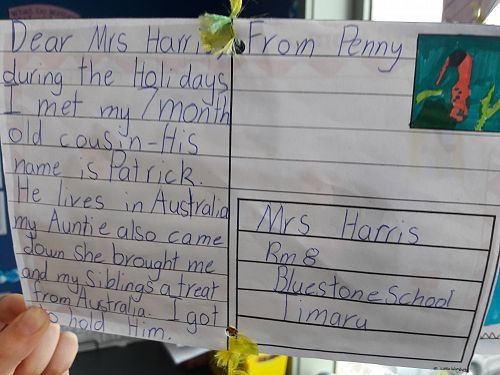 Dear Mrs Harris,
during the Holidays
I met my 7month
old cousin-His
name is Patrick.
He lives in Australia
my Auntie also came
down she brought me
and my Siblings a treat
from Australia. I got
to hold Him.
From Penny
Mrs Harris
Rm 8
Bluestone School
Timaru